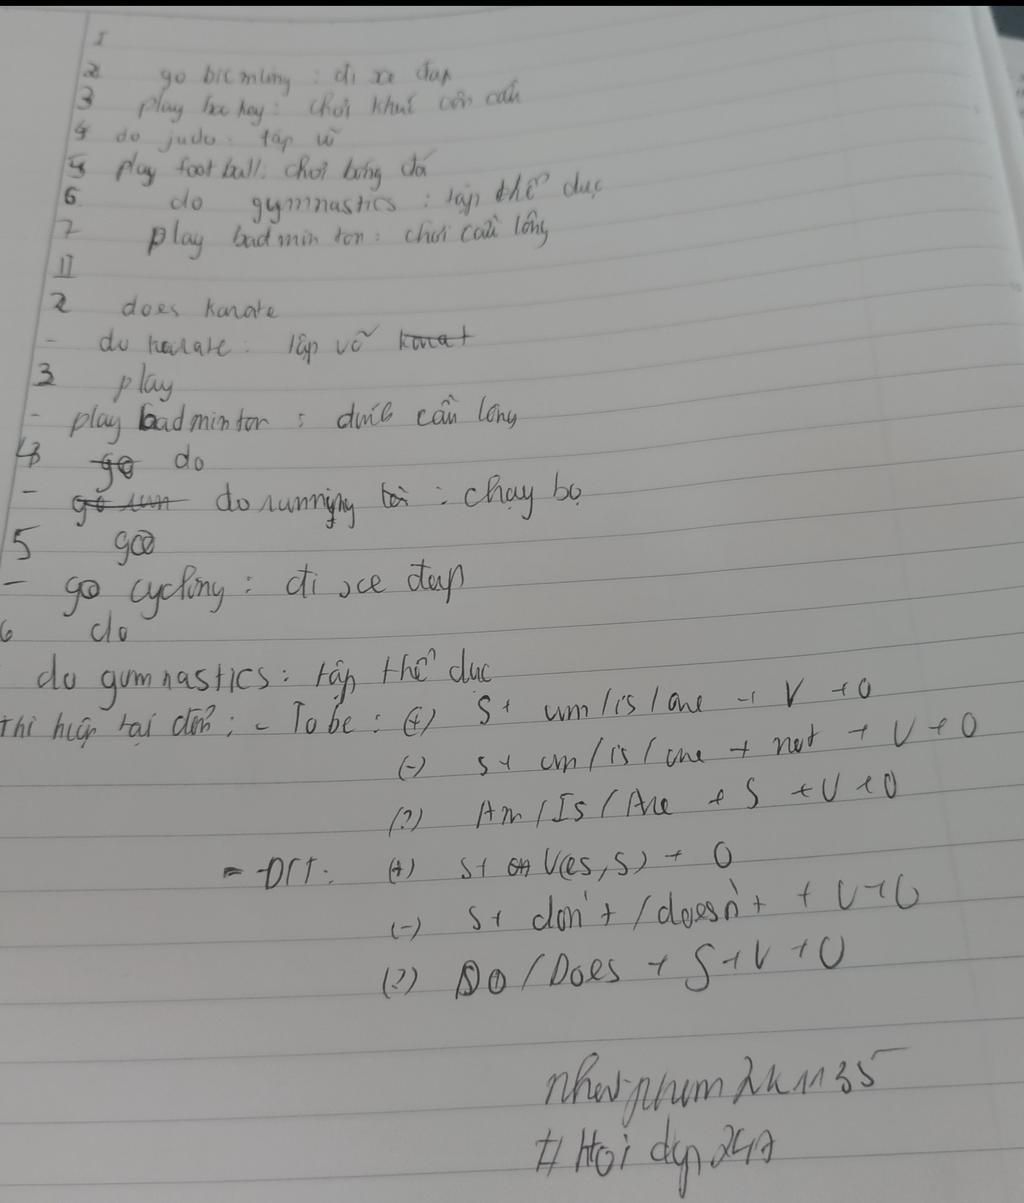 I
2 go bicmling : đi xe đạp
3 play hockey : chơi khúc côn cầu
4 do judo : tập võ
5 play football : chơi bóng đá
6. do gymnastics : tập thể dục
7 play badminton : chơi cầu lông
II
2 does karate
- do karate : tập võ
3 play
- play badminton : đánh cầu lông
4 do
- do running : chạy bộ
5 go
- go cycling : đi xe đạp
6 do
do gymnastics : tập thể dục
thì hiện tại đơn : - To be : (+) S + am / is / are + V + O
(-) S + am / is / are + not + V + O
(?) Am / Is / Are + S + V + O
- ĐTT : (+) S + V(es, s) + O
(-) S + don't / doesn't + V + O
(?) Do / Does + S + V + O
# Hoi dap 247